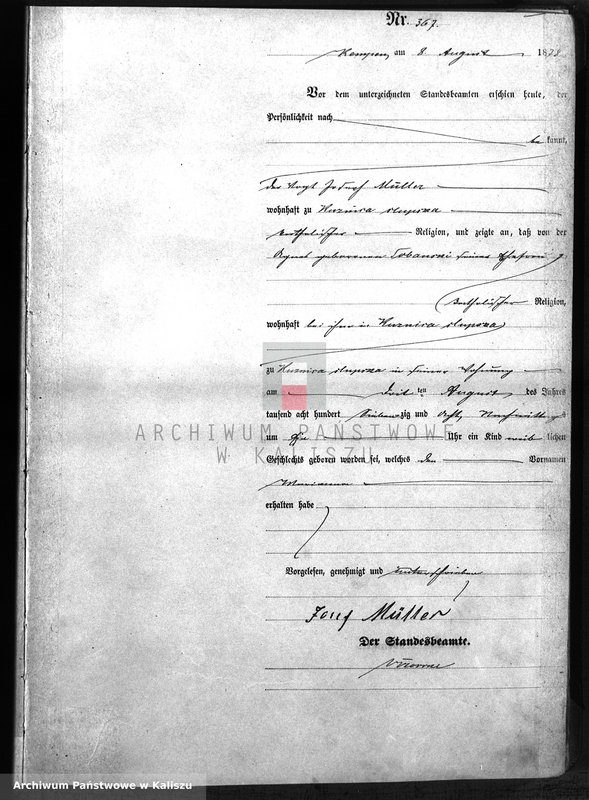 Nr. 367.
Kempen, am 8. August 1878
Vor dem unterzeichneten Standesbeamten erschien heute, der
Persönlichkeit nach
be kannt,
der Vogt Joseph Müller
wohnhaft zu Kuznica slupska
katholischer Religion, und zeigte an, daß von der
geborenen seiner Ehefrau
katholischer Religion,
wohnhaft bei ihm in Kuznica slupska
zu Kuznica slupska in seiner Wohnung
am ten August des Jahres
tausend acht hundert Siebenzig und Acht, Nachmittags
um Uhr ein Kind weib lichen
Geschlechts geboren worden sei, welches den Vornamen
Marianna
erhalten habe
ARCHIWUM PAŃSTWOWE
W KALISZU
Vorgelesen, genehmigt und unterschrieben
Josef Müller
Der Standesbeamte.
Archiwum Państwowe w Kaliszu